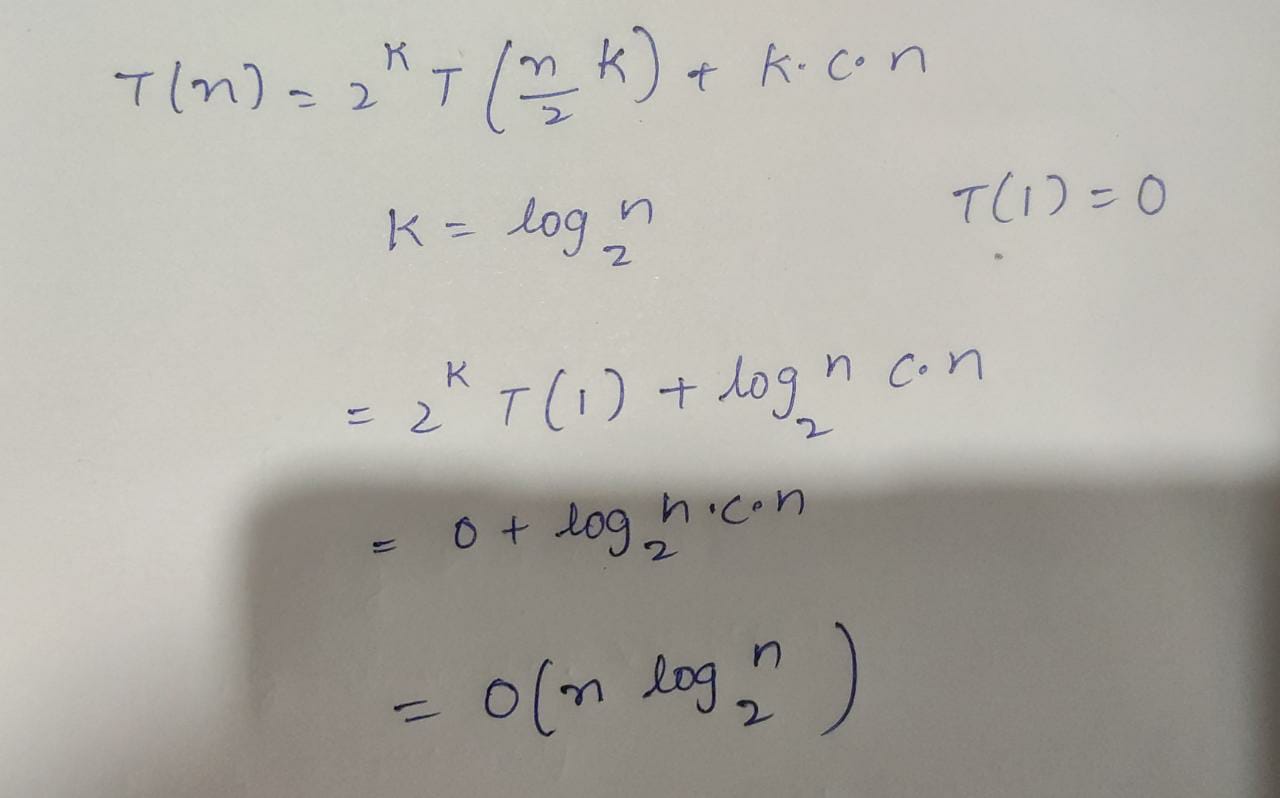 T(n) = 2^K T(n/2 K) + K·C·n
K = log₂ n T(1) = 0
= 2^K T(1) + log₂ n C·n
= 0 + log₂ n·C·n
= O(n log₂ n)